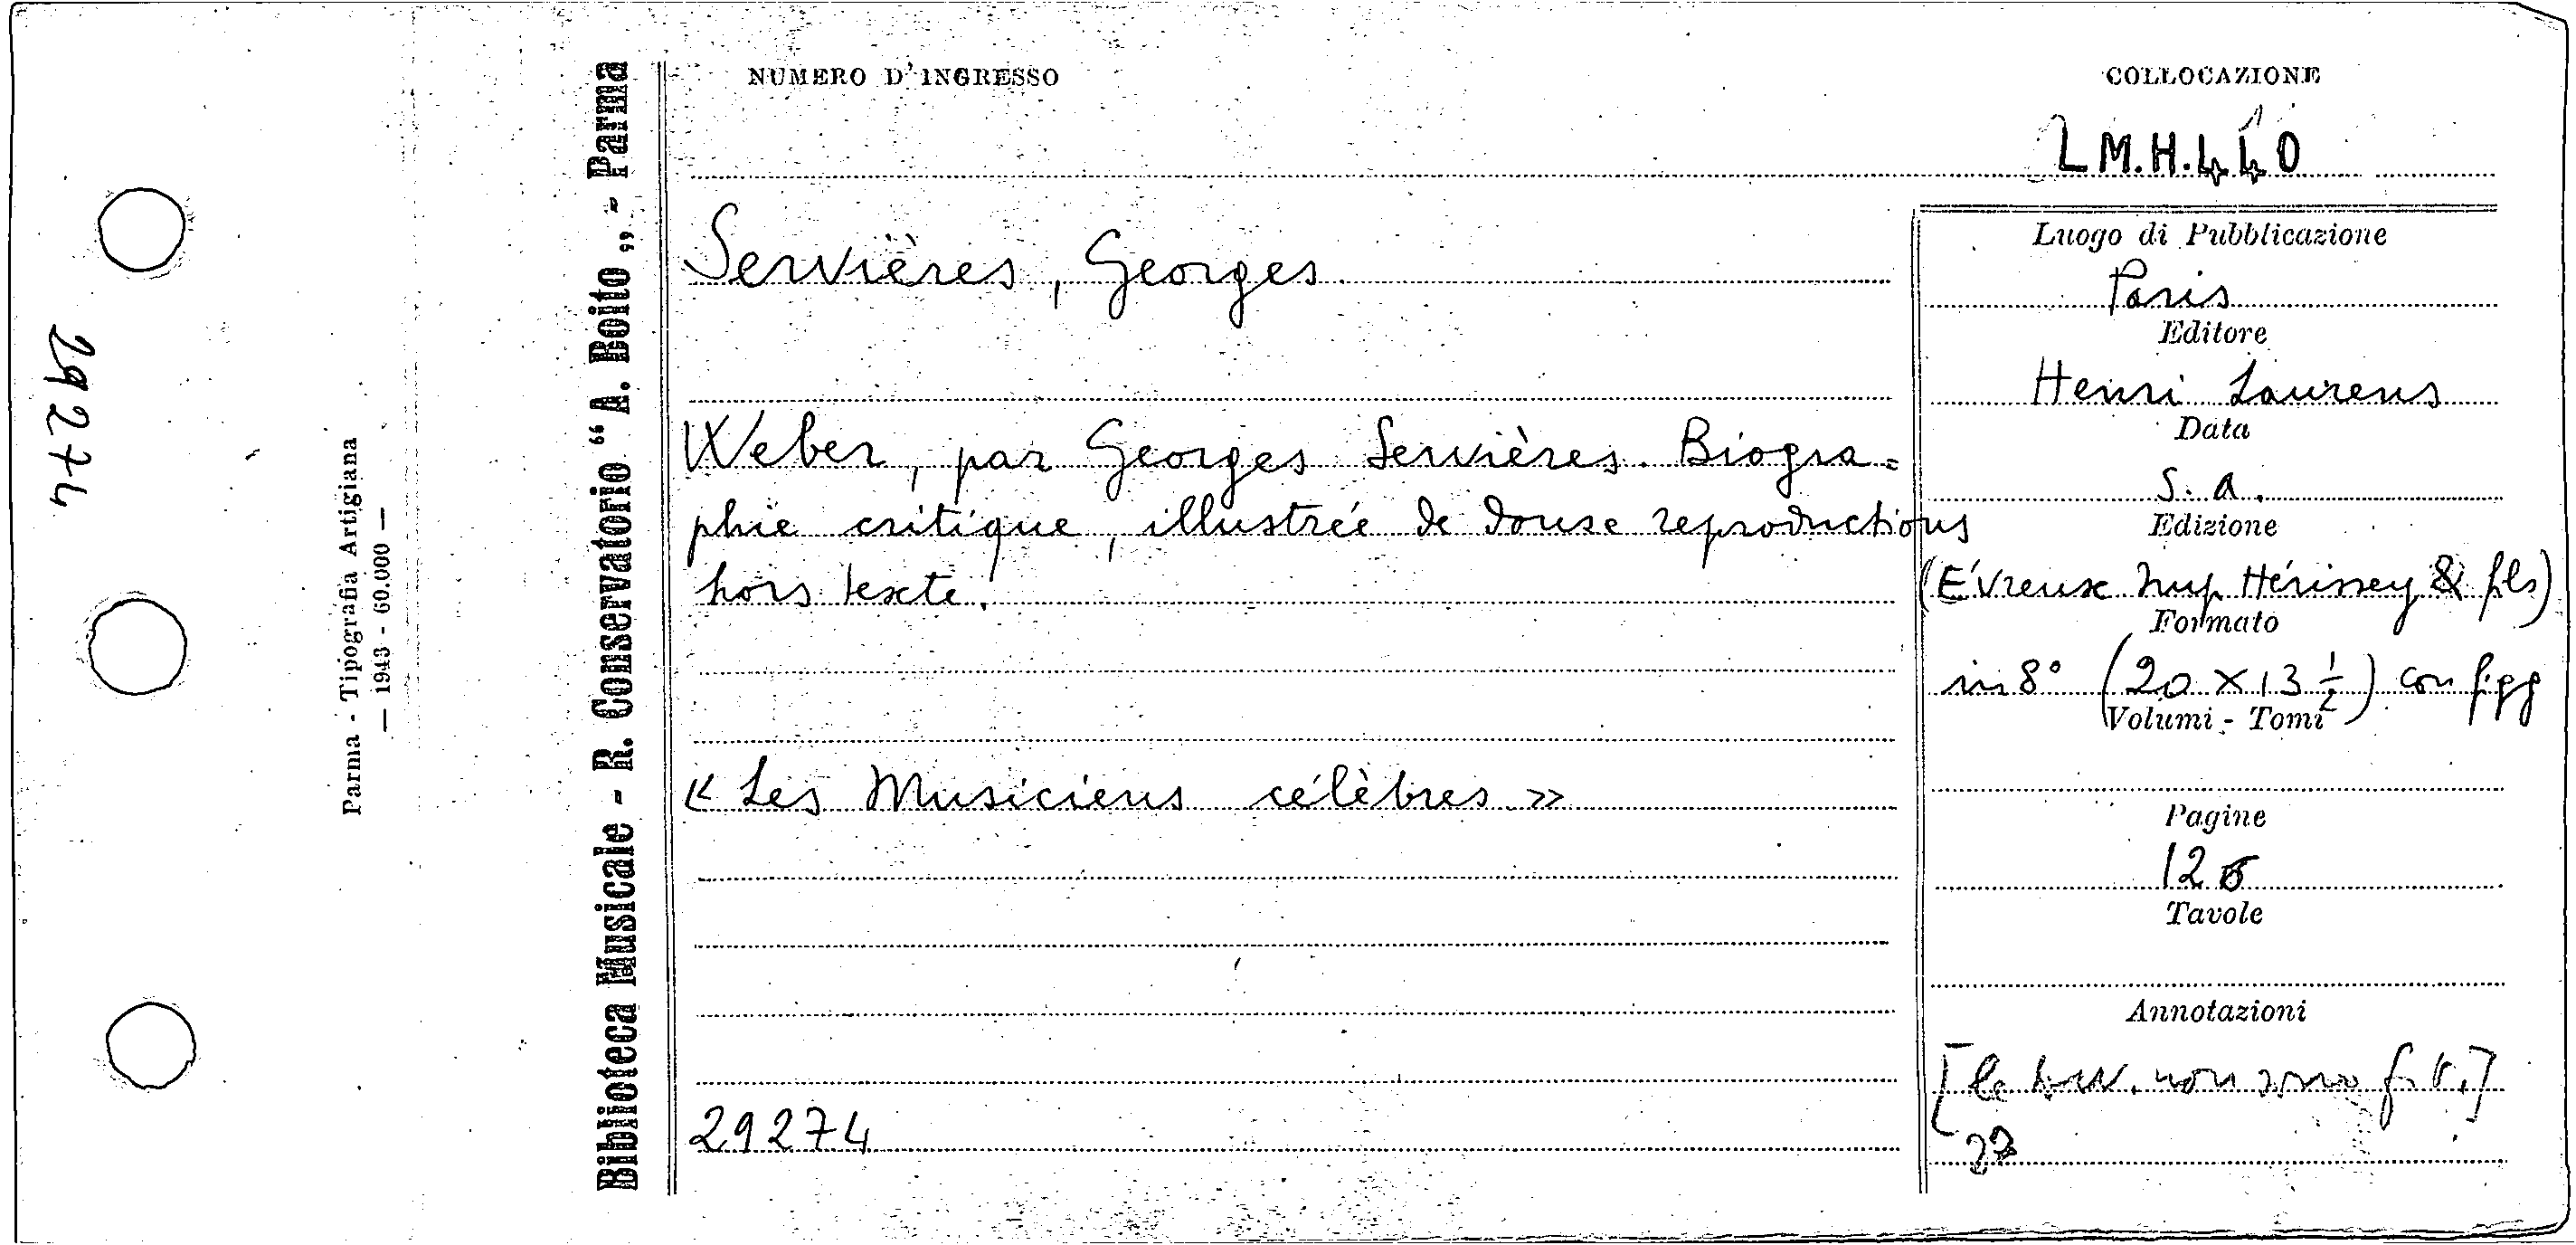 NUMERO D'INGRESSO
COLLOCAZIONE
L M.H.440
Servières, Georges
Weber, par Georges Servières. Biogra=
phie critique, illustrée de douse reproductions
hors texte.
« Les Musiciens célèbres »
29274
Luogo di Pubblicazione
Paris
Editore
Henri Laurens
Data
s. a.
Edizione
(Évreux Imp Hérissey & fils)
Formato
in 8° (20 × 13 ½) con figg
Volumi - Tomi
Pagine
126
Tavole
Annotazioni
non sono
Biblioteca Musicale - R. Conservatorio "A. Boito„ - Parma
Parma - Tipografia Artigiana
— 1943 - 60.000 —
29274